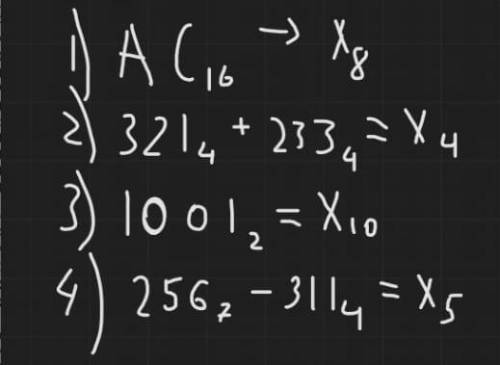 1) AC₁₆ → X₈
2) 321₄ + 233₄ = X₄
3) 1001₂ = X₁₀
4) 256₇ - 311₄ = X₅